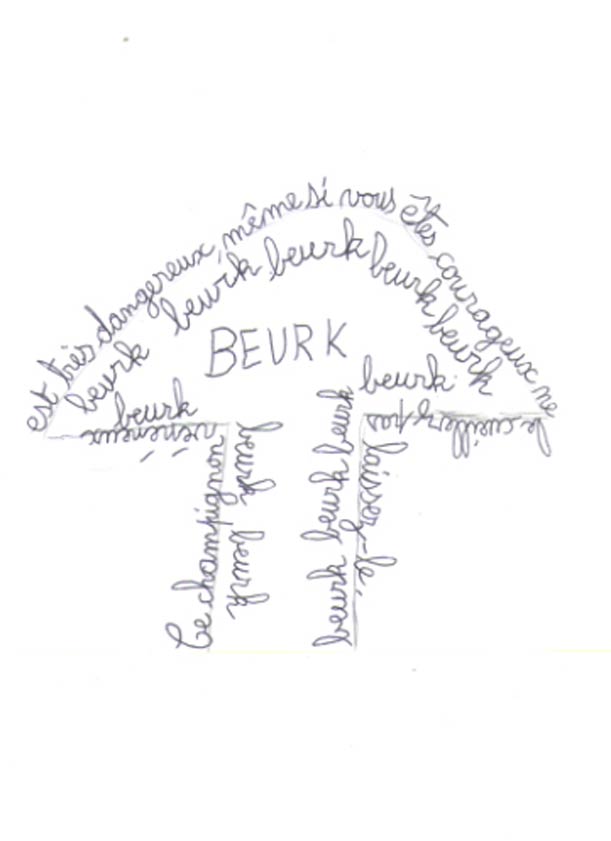 Le champignon
vénéneux
est très dangereux, même si vous êtes courageux ne
le cueillez pas
laissez-le.
beurk beurk
beurk
beurk beurk beurk beurk beurk
beurk
beurk beurk beurk
BEURK